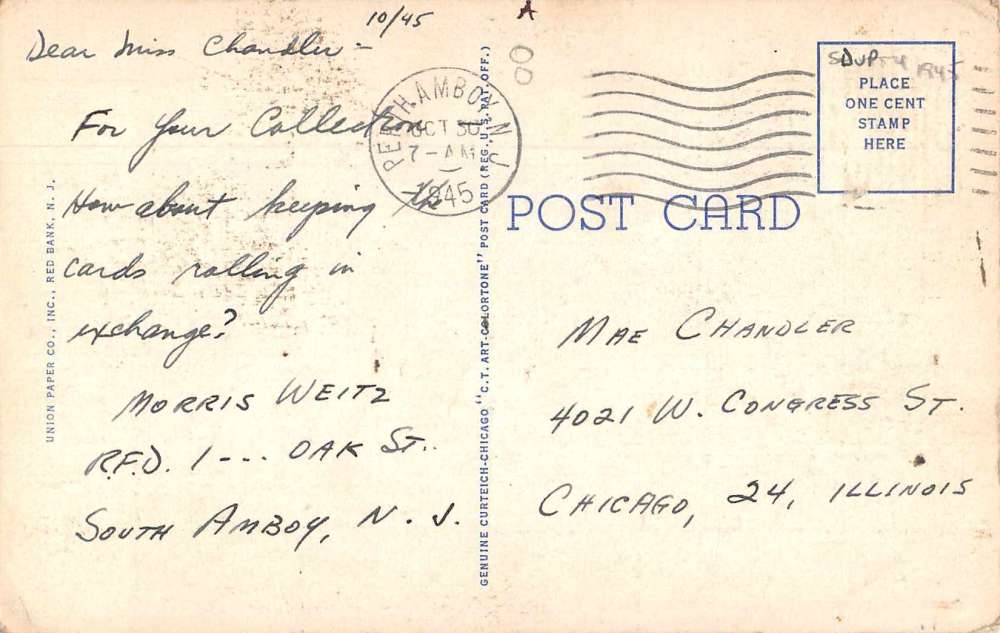 10/45
A
Dear Miss Chandler -
For your Collection
How about keeping the
cards rolling in
exchange?
MORRIS WEITZ
R.F.D. 1 --- OAK ST.
SOUTH AMBOY, N. J.
UNION PAPER CO., INC., RED BANK, N. J.
00
PERTH AMBOY N J
OCT 30
7 - AM
1945
GENUINE CURTEICH-CHICAGO "C.T. ART-COLORTONE" POST CARD (REG. U.S. PAT. OFF.)
POST CARD
DUP
1945
PLACE
ONE CENT
STAMP
HERE
MAE CHANDLER
4021 W. CONGRESS ST.
CHICAGO, 24, ILLINOIS